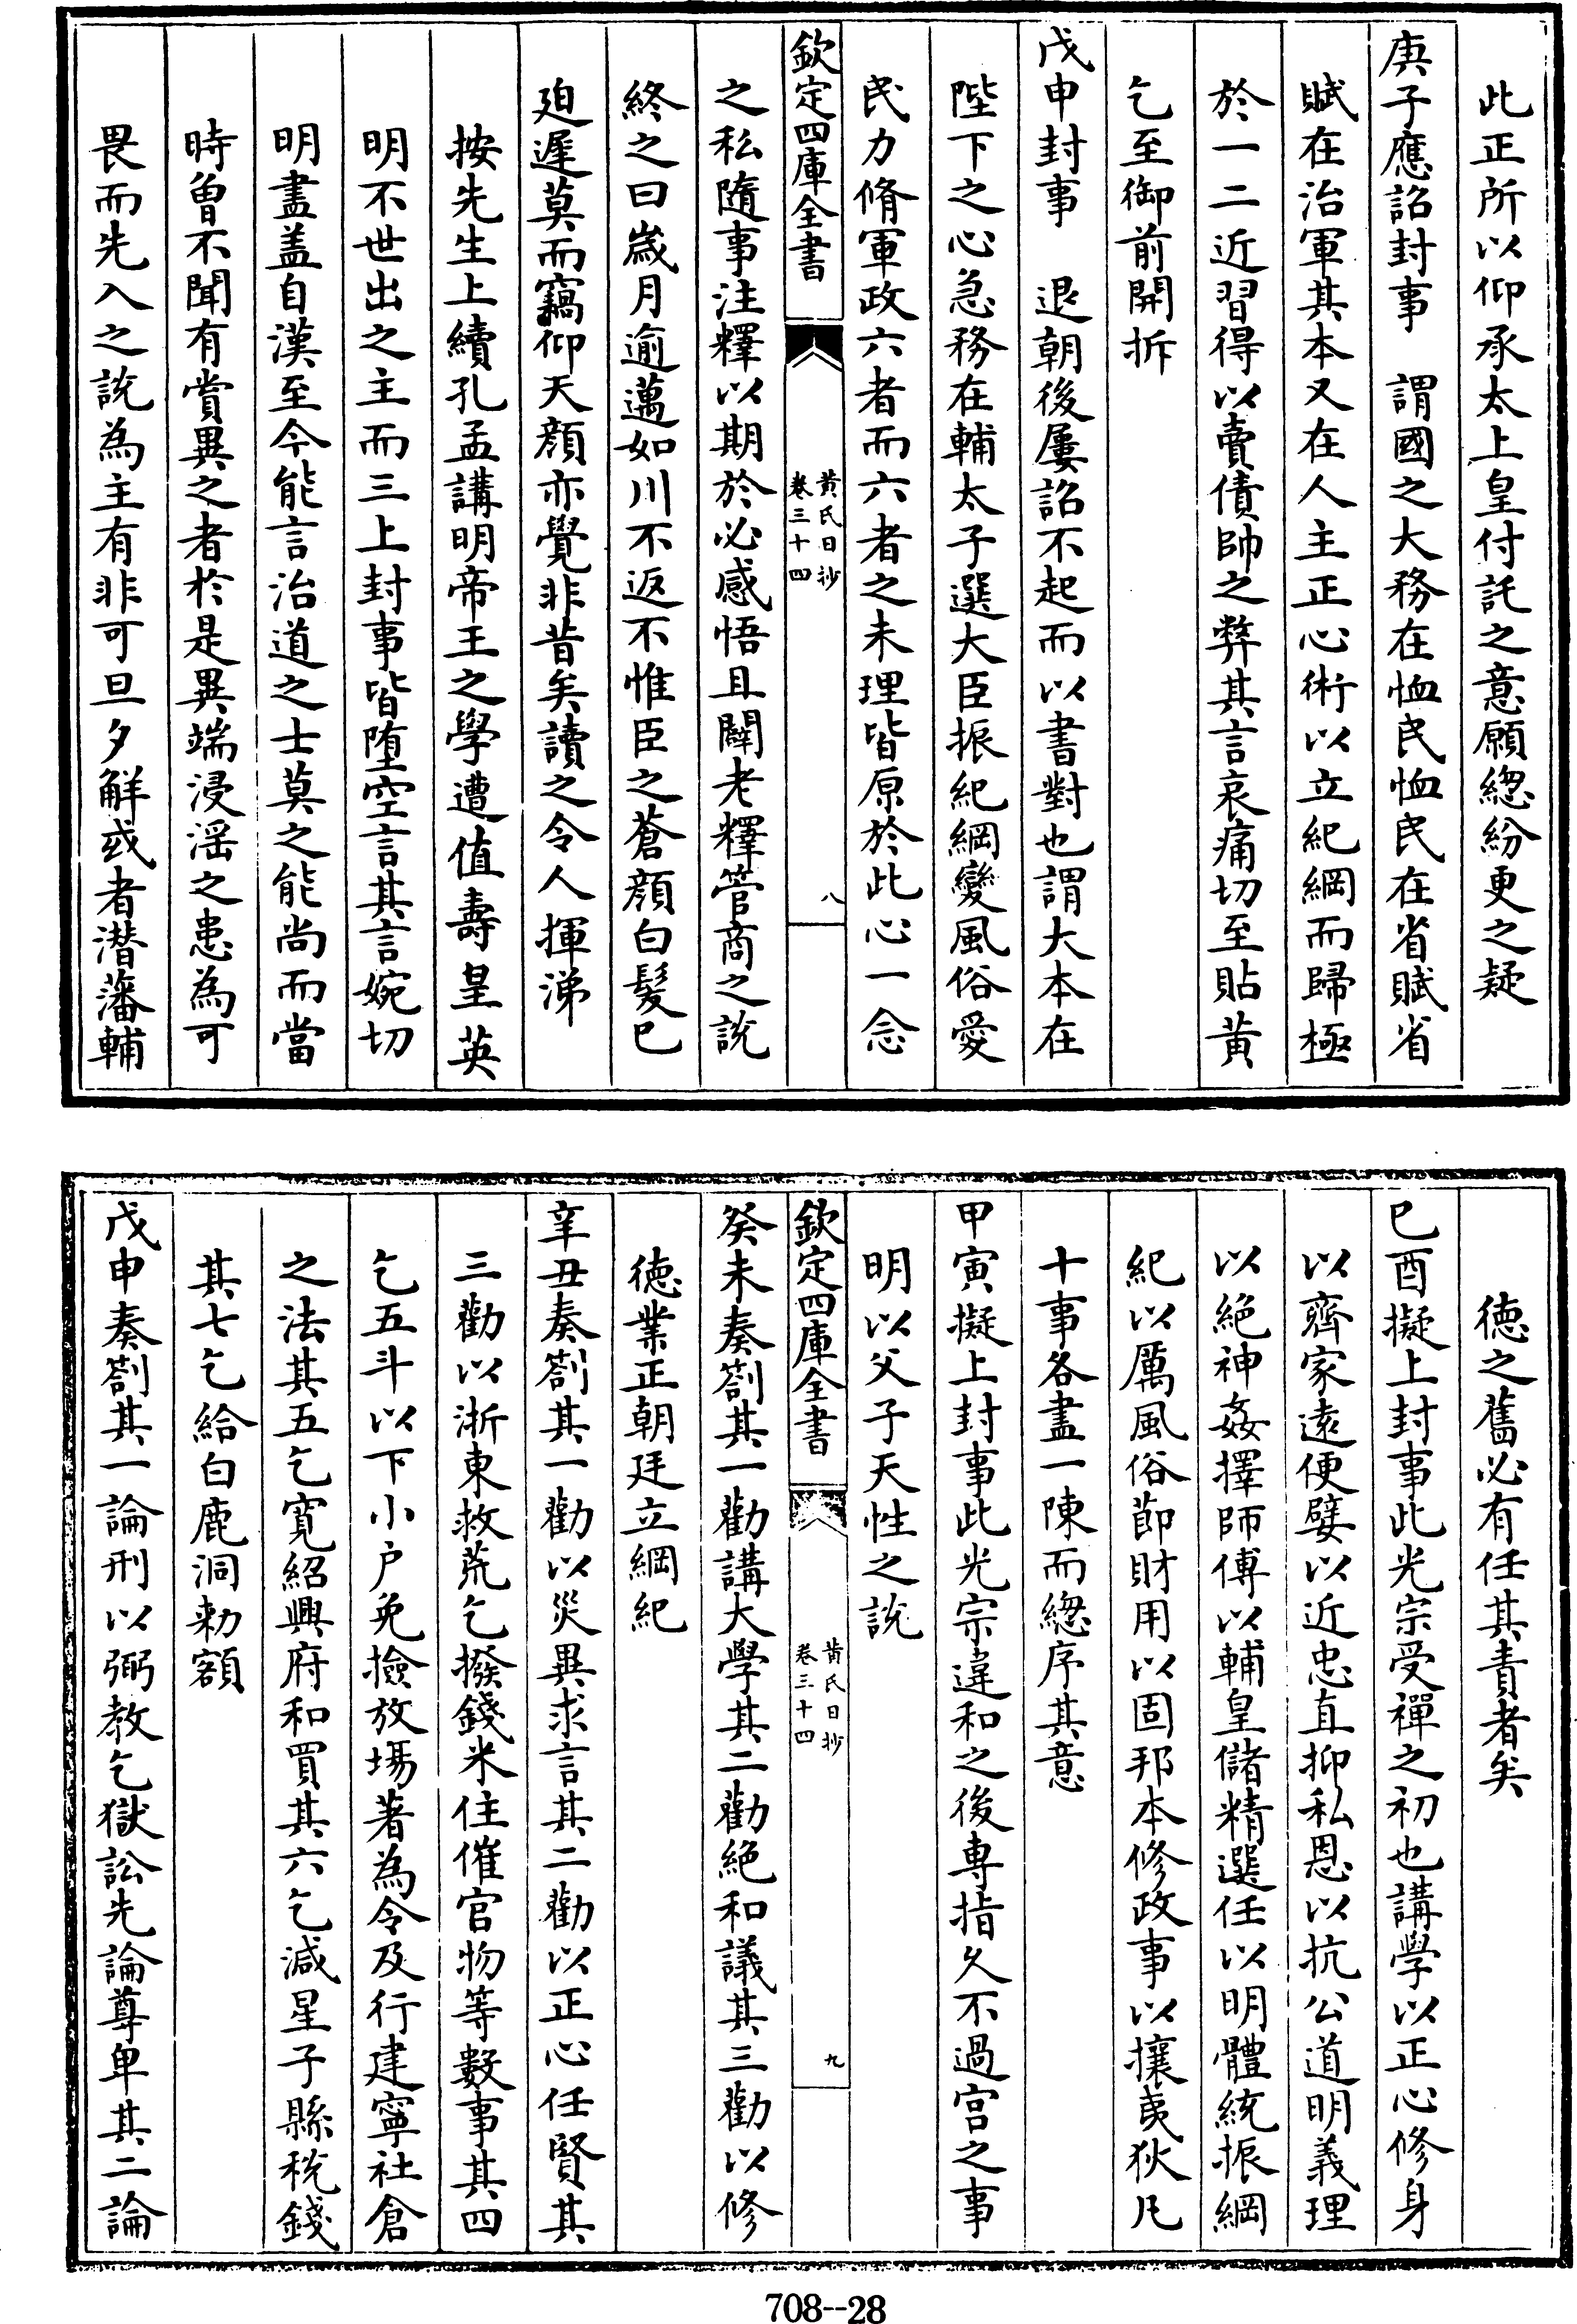 此正所以仰承太上皇付託之意願緫紛更之疑
庚子應詔封事　謂國之大務在恤民恤民在省賦省
賦在治軍其本又在人主正心術以立紀綱而歸極
於一二近習得以賣債帥之弊其言哀痛切至貼黄
乞至御前開拆
戊申封事　退朝後屢詔不起而以書對也謂大本在
陛下之心急務在輔太子選大臣振紀綱變風俗愛
民力脩軍政六者而六者之未理皆原於此心一念
欽定四庫全書　黄氏日抄　卷三十四　八
之私隨事注釋以期於必感悟且闢老釋管商之說
終之曰歲月逾邁如川不返不惟臣之蒼顔白髮已
廹遲莫而竊仰天顔亦覺非昔矣讀之令人揮涕
按先生上續孔孟講明帝王之學遭值壽皇英
明不世出之主而三上封事皆墮空言其言婉切
明盡盖自漢至今能言治道之士莫之能尚而當
時曾不聞有賞異之者於是異端浸淫之患為可
畏而先入之說為主有非可旦夕觧或者潛藩輔
徳之舊必有任其責者矣
已酉擬上封事此光宗受禪之初也講學以正心修身
以齊家遠便嬖以近忠直抑私恩以抗公道明義理
以絕神姦擇師傅以輔皇儲精選任以明體統振綱
紀以厲風俗節財用以固邦本修政事以攘夷狄凡
十事各盡一陳而緫序其意
甲寅擬上封事此光宗違和之後專指久不過宫之事
明以父子天性之說
欽定四庫全書　黄氏日抄　卷三十四　九
癸未奏劄其一勸講大學其二勸絕和議其三勸以修
徳業正朝廷立綱紀
辛丑奏劄其一勸以災異求言其二勸以正心任賢其
三勸以浙東救荒乞撥錢米住催官物等數事其四
乞五斗以下小户免撿放塲著為令及行建寧社倉
之法其五乞寛紹興府和買其六乞減星子縣稅錢
其七乞給白鹿洞勅額
戊申奏劄其一論刑以弼教乞獄訟先論尊卑其二論
708--28